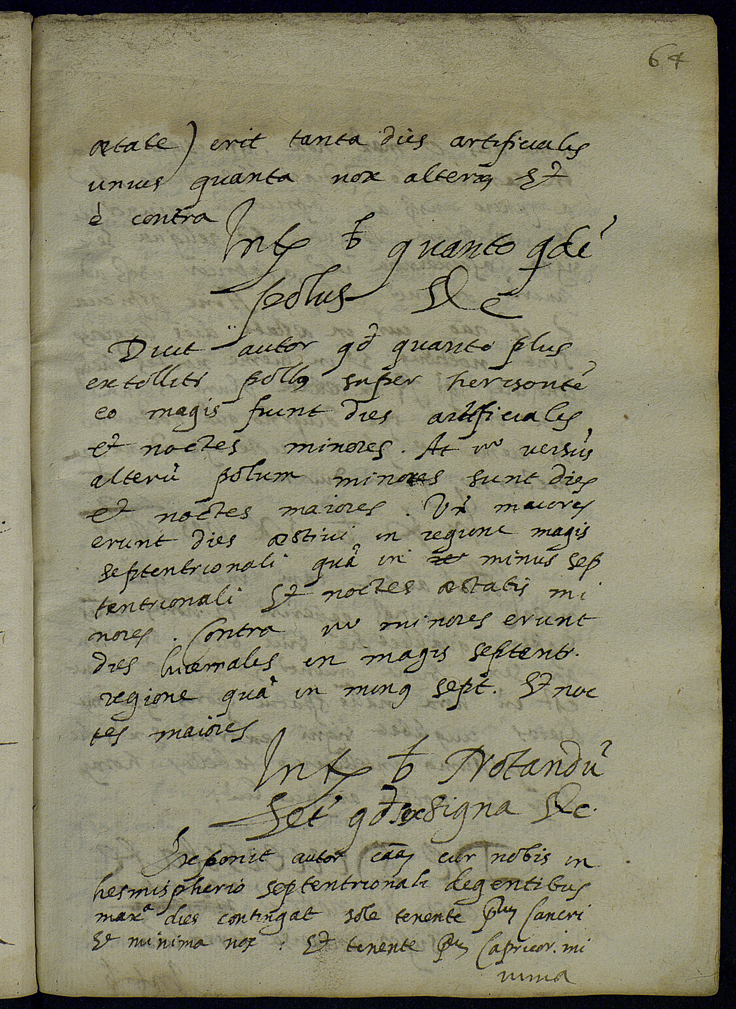 64
ætate) erit tanta dies artificialis
unius quanta nox alterius Et
è contra
quanto qdē
polus &c
Dicit autor qđ quanto plus
extollitr pollus super horisontē
eo magis fiunt dies artificiales
et noctes minores. At vo versus
alterū polum minores sunt dies
et noctes maiores. Vn maiores
erunt dies æstivi in regione magis
septentrionali quā in minus sep
tentrionali Et noctes æstatis mi
nores. Contra vo minores erunt
dies hiemales in magis septentr.
regione quā in minus sept. Et noc
tes maiores
Notandū
qđ sex signa &c.
autor cur nobis in
hesmispherio septentrionali degentibus
maxa dies contingat sole tenente Cancri
Et minima nox: Et tenente Capricor. mi
nima